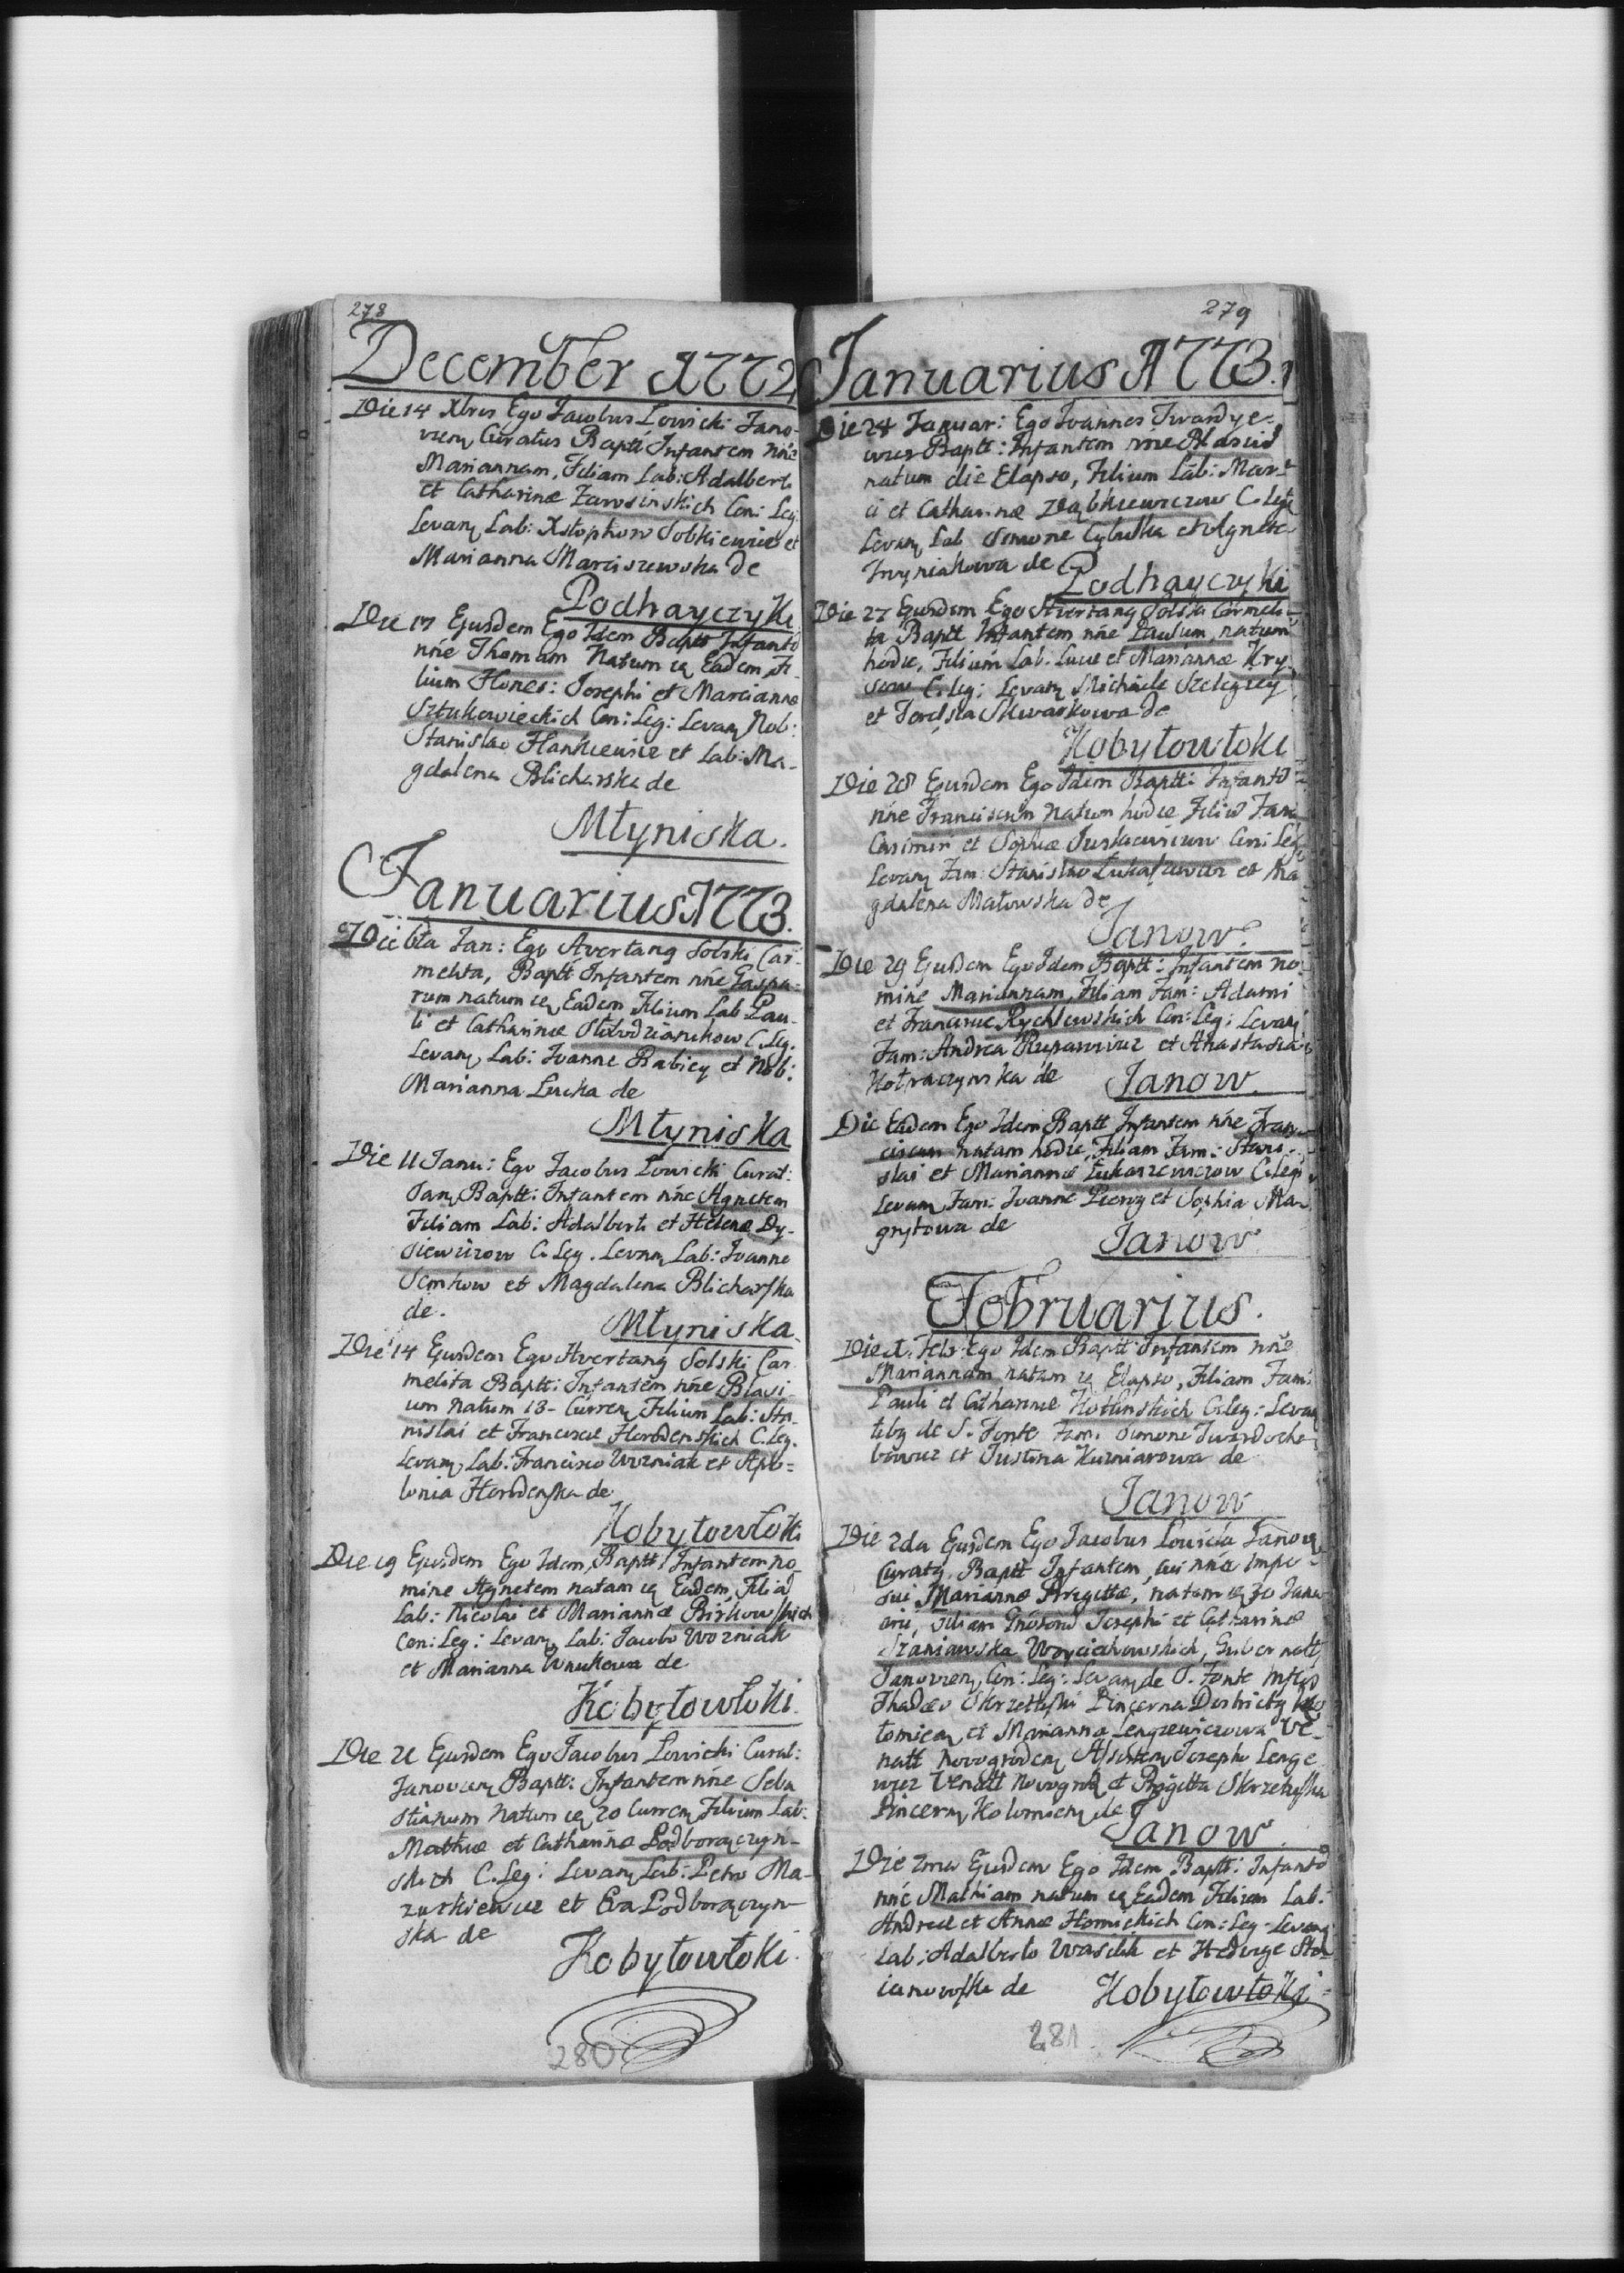 278
December A 1772
Die 14 Xbris Ego Jacobus Lowicki Jano-
vien Curatus Baptt Infantem nñe
Mariannam, Filiam Lab: Adalberti
et Catharinæ Zarosinskich Con: Leg:
Levan Lab: Xstophoro Sobkiewicz et
Marianna Marciszewska de
Podhayczyki
Die 17 Ejusdem Ego Idem Baptt Infantẽ
nñe Thomam Natum Eadem Fi-
lium Hones: Josephi et Mariannæ
Sztukowieckich Con: Leg: Levan Nob:
Stanislao Hankiewicz et Lab: Ma-
gdalena Blicharska de
Młyniska.
Januarius A 1773.
Die 6ta Jan: Ego Avertang Solski Car-
melita, Baptt Infantem nñe Gaspa-
rum natum Eadem Filium Lab Pau-
li et Catharinæ C. Leg.
Levan Lab: Joanne Babicz et Nob:
Marianna Lucka de
Młyniska
Die 11 Janu: Ego Jacobus Lowicki Curat:
Jan Baptt: Infantem nñe Agnetem
Filiam Lab: Adalberti et Helenæ Dy-
siewiczow C. Leg. Levan Lab: Joanne
Semkow et Magdalena Blicharska
de.
Młyniska
Die 14 Ejusdem Ego Avertang Solski Car-
melita Baptt: Infantem nñe Blasi-
um natum 13- Curren Filium Lab: Sta-
nislai et Franciscæ Horodenskich C. Leg.
Levan Lab. Francisco Wozniak et Apo=
lonia Horodenska de
Kobyłowłoki
Die 19 Ejusdem Ego Idem Baptt Infantem no
mine Agnetem natam Eadem, Filiã
Lab: Nicolai et Mariannæ Birkowskich
Con: Leg: Levan Lab: Jacobo Wozniak
et Marianna Wnukowa de
Kobyłowłoki.
Die 21 Ejusdem Ego Jacobus Lowicki Curat:
Janovien Baptt: Infantem nñe Seba
stianum natum 20 Curren Filium Lab:
Mathiæ et Catharinæ Podborączyn-
skich C. Leg: Levan Lab: Petro Ma-
zurkiewicz et Eva Podborączyn-
ska de
Kobyłowłoki.
280
279
Januarius A 1773.
Die 24 Januar: Ego Joannes Twardye-
wicz Baptt: Infantem nñe
natum die Elapso, Filium Lab: Mar-
ci et Catharinæ C. Leg
Levan Lab Simone Cybulka et Agnete
de
Podhayczyki
Die 27 Ejusdem Ego Avertang Solski Carmeli-
ta Baptt Infantem nñe Paulum natum
hodie, Filium Lab. Lucæ et Mariannæ Kry
sow C. leg: Levan Michaele
et Skwarkowa de
Kobyłowłoki
Die 28 Ejusdem Ego Idem Baptt: Infantẽ
nñe Franciscum natum hodie Filiũ Fam
Casimiri et Sophiæ Con: Leg
Levan Fam: Stanislao et Ma
gdalena Małowska de
Janow.
Die 29 Ejusdem Ego Idem Baptt: Infantem no
mine Mariannam, Filiam Fam: Adami
et Franciscæ Rychlewskich Con: Leg: Levan
Fam: Andrea et Anastasia
de Janow.
Die Eadem Ego Idem Baptt Infantem nñe Fran-
ciscam natam hodie, Filiam Fam: Stani-
slai et Mariannæ Łukaszewiczow C. Leg:
Levan Fam: Joanne et Sophia Ma
de
Janow.
Februarius.
Die 1. Febr Ego Idem Baptt Infantem nñe
Mariannam natam Elapso, Filiam Fam:
Pauli et Catharinæ Kotlinskich C. leg: Levan
de S. Fonte Fam: Simone Twardoche
bowicz et Justina Kuzniarowa de
Janow
Die 2da Ejusdem Ego Jacobus Lowicki Janov
Curatg. Baptt Infantem, cui nña impo-
sui Mariannæ Brigittæ, natam 30 Janu
arii, Filiam Josephi et Catharinæ
Szaniawska Woyciechowskich, Gubernatt
Janovien, Con: Leg: Levan de S. Fonte
Thadæo Skrzetuski Pincerna Districtg
lomien et Marianna Lengiewiczowa Ve-
natt Novogroden Josepho Lenge
wicz Venatt et Brigitta Skrzetuska
Pincern Kolomien de
Janow.
Die Ejusdem Ego Idem Baptt: Infantẽ
nñe Mathiam natum Eadem Filium Lab:
Andreæ et Annæ Homickich Con: Leg: Levan
Lab: Adalberto Wasilik et Hedvige Sto
ianowska de Kobyłowłoki
281